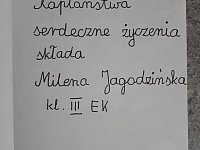 Kapłaństwa
serdeczne życzenia
składa
Milena Jagodzińska
kl. III EK